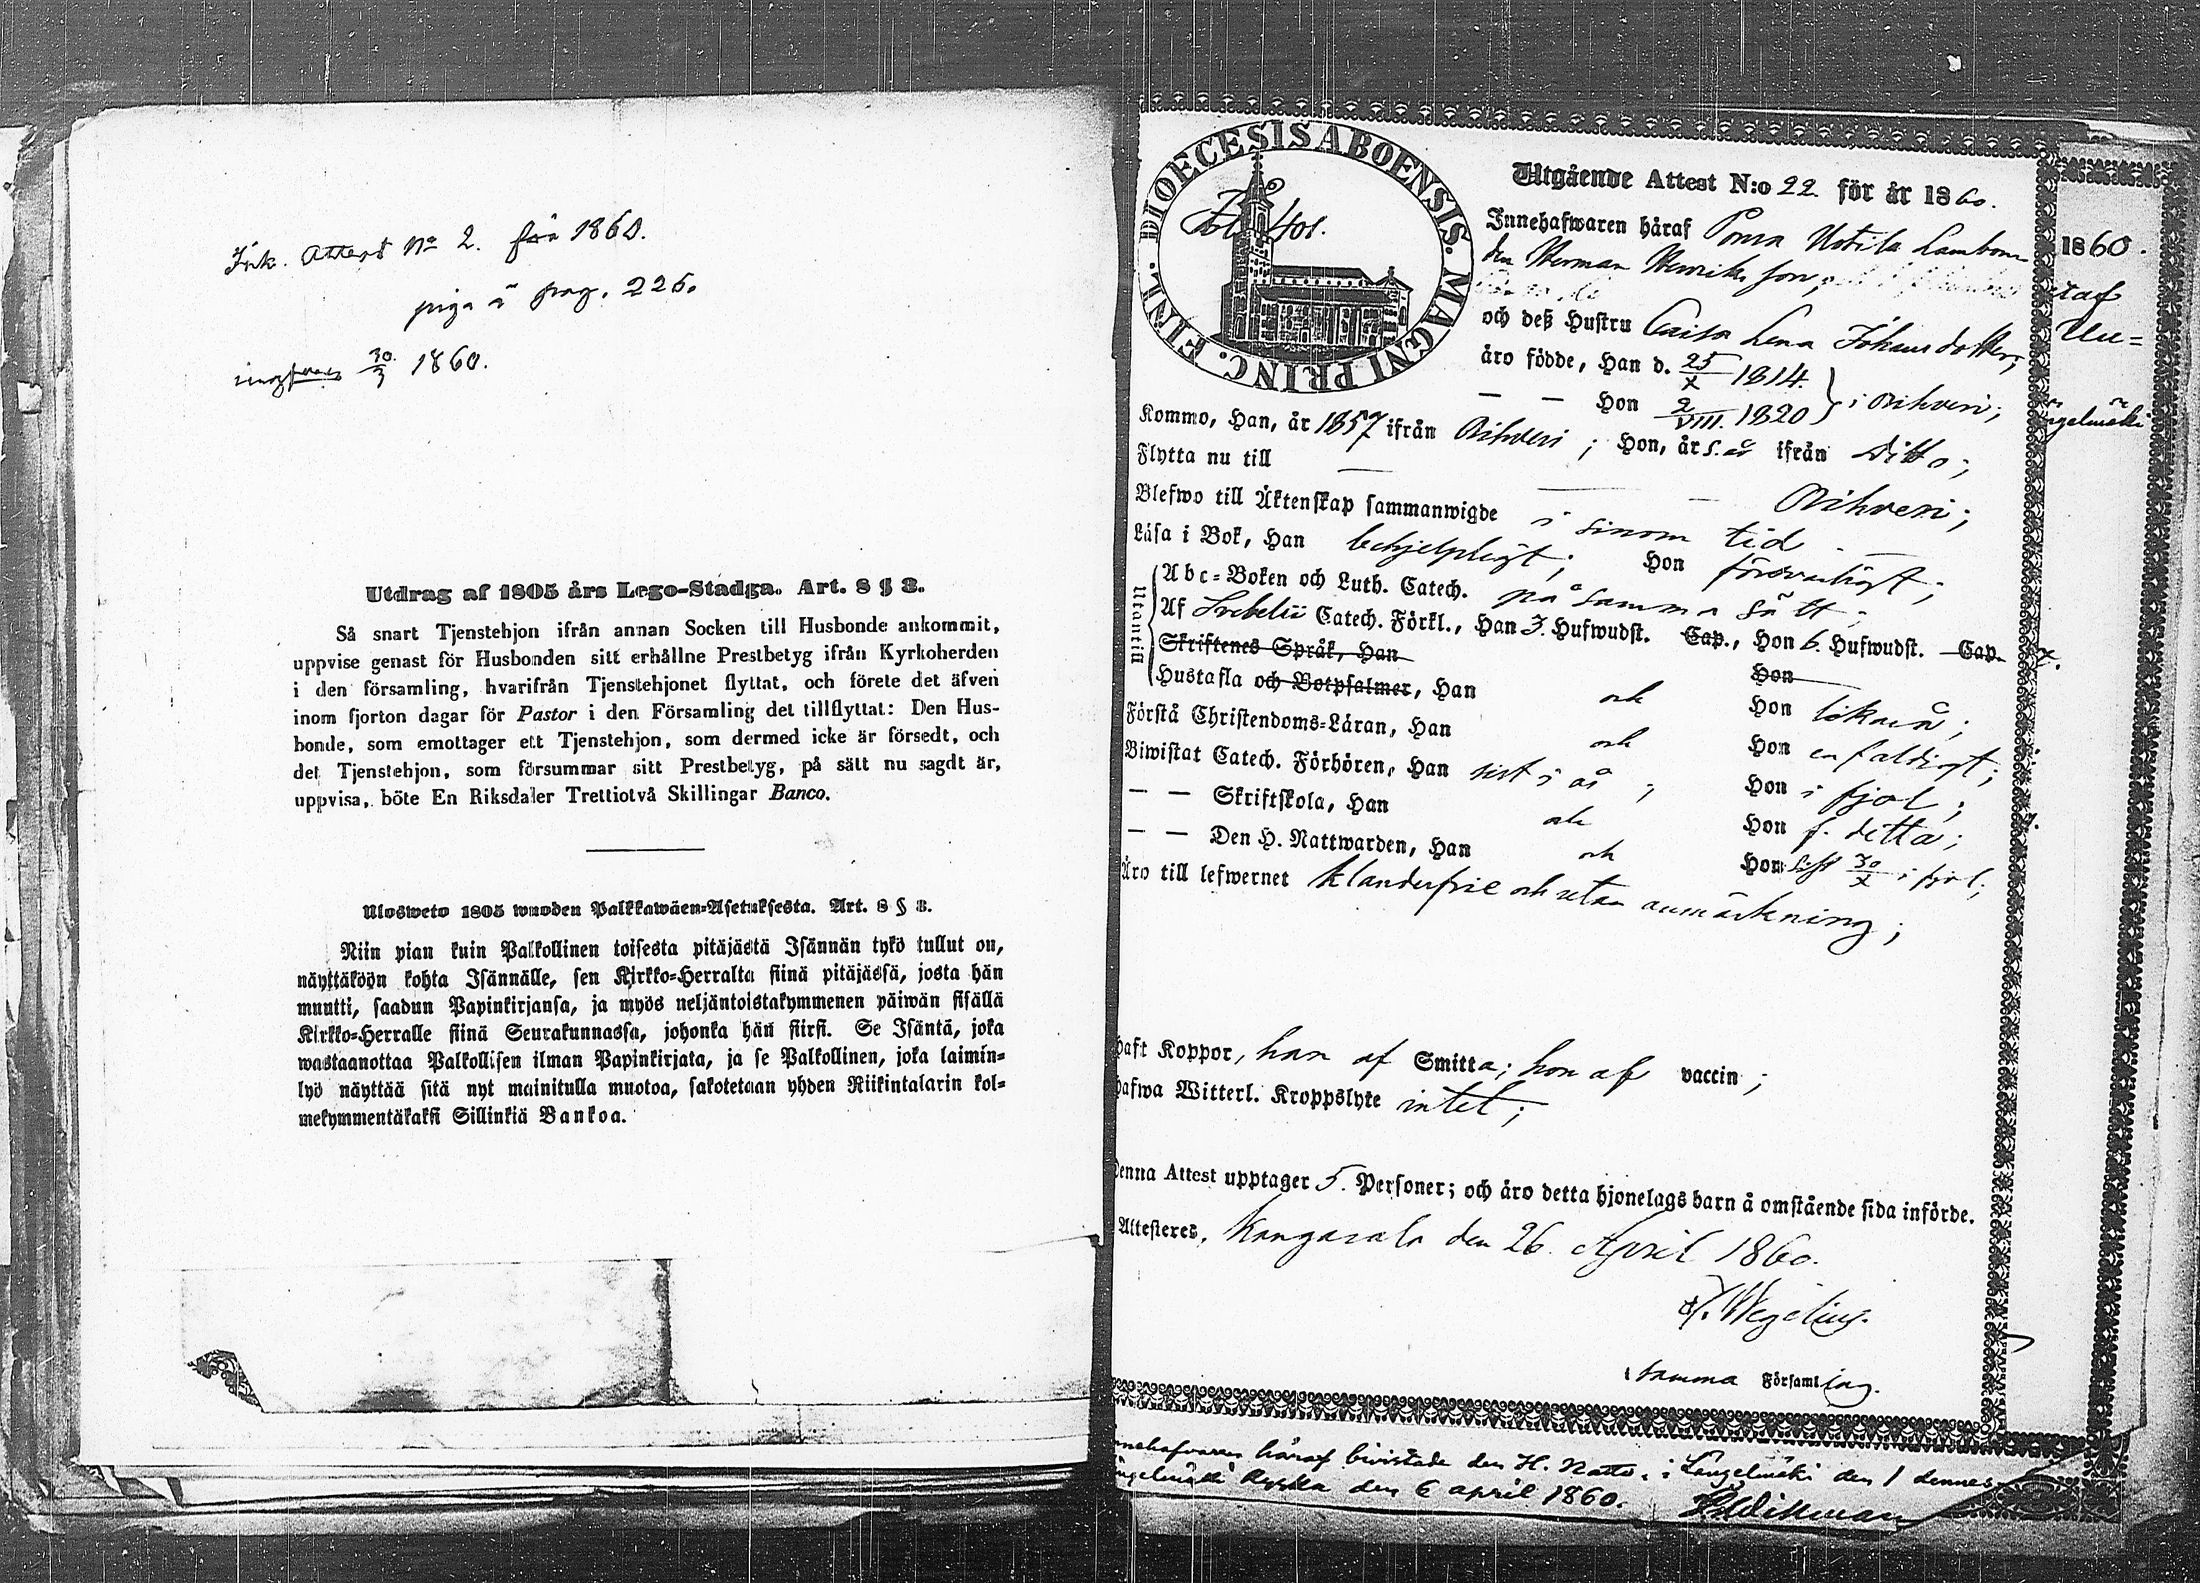 Ink. Attest No 2. för 1860.
piga å pag. 226.
30/3 1860.
Utdrag af 1805 års Lego-Stadga. Art. 8 § 3.
Så snart Tjenstehjon ifrån annan Socken till Husbonde ankommit,
uppvise genast för Husbonden sitt erhållne Prestbetyg ifrån Kyrkoherden
i den församling, hvarifrån Tjenstehjonet flyttat, och förete det äfven
inom fjorton dagar för Pastor i den Församling det tillflyttat: Den Hus-
bonde, som emottager ett Tjenstehjon, som dermed icke är försedt, och
det Tjenstehjon, som försummar sitt Prestbetyg, på sätt nu sagdt är,
uppvisa, böte En Riksdaler Trettiotvå Skillingar Banco.
Ulosweto 1805 wuoden Palkkawäen-Asetuksesta. Art. 8 § 3.
Niin pian kuin Palkollinen toisesta pitäjästä Isännän tykö tullut on,
näyttäköön kohta Isännälle, sen Kirkko-Herralta siinä pitäjässä, josta hän
muutti, saadun Papinkirjansa, ja myös neljäntoistakymmenen päiwän sisällä
Kirkko-Herralle siinä Seurakunnassa, johonka hän siirsi. Se Isäntä, joka
wastaanottaa Palkollisen ilman Papinkirjata, ja se Palkollinen, joka laimin-
lyö näyttää sitä nyt mainitulla muotoa, sakotetaan yhden Riikintalarin kol-
mekymmentäkaksi Sillinkiä Bankoa.
DIOECESIS ABOENSIS. MAGNI PRINC. FINL.
Fol 401.
Utgående Attest N:o 22 för år 1860.
Innehafwaren häraf Torpa Uotila Lambon
den Herman Henriksson,
och deß Hustru Caisa Lena Johansdotter,
äro födde, Han d. 25/X 1814.
— — Hon 2/VIII. 1820 i Orihvesi;
Kommo, Han, år 1857 ifrån Orihvesi; Hon, år s. år ifrån Ditto;
Flytta nu till — — —
Blefwo till Äktenskap sammanwigde i sinom tid Orihvesi;
Läsa i Bok, Han behjelpligt; Hon försvarligt;
Utantill
Abc-Boken och Luth. Catech. på samma sätt;
Af Svebelii Catech. Förkl., Han 3. Hufwudst. Cap., Hon 6. Hufwudst. Cap.
Skriftenes Språk, Han Hon
Hustafla och Botpsalmer, Han och Hon likaså;
Förstå Christendoms-Läran, Han och Hon enfaldigt;
Biwistat Catech. Förhören, Han sist i år, Hon i fjol;
— — Skriftskola, Han och Hon f. ditto;
— — Den H. Nattwarden, Han och Hon sist 30/X i fjol;
Äro till lefwernet klanderfrie och utan anmärkning;
Haft Koppor, han af Smitta; hon af vaccin;
Hafwa Witterl. Kroppslyte intet;
Denna Attest upptager 5. Personer; och äro detta hjonelags barn å omstående sida införde.
Attesteres, Kangasala den 26. April 1860.
Wegelius.
i samma Församling.
1860.
Innehafvaren häraf bivistade den H. Nattv. i Längelmäki den 1 dennes
Längelmäki Kyrka den 6 april 1860.